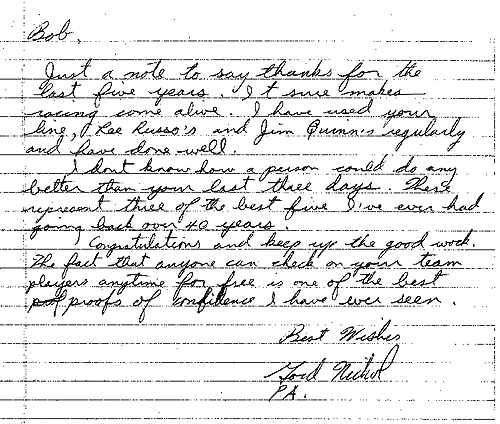 Bob,
Just a note to say thanks for the
last five years. It sure makes
racing come alive. I have used your
line, Rae Russo's and Jim Quinn's regularly
and have done well.
I dont know how a person could do any
better than your last three days. These
represent three of the best five I've ever had
going back over 40 years.
Congratulations and keep up the good work.
The fact that anyone can check on your team
players anytime for free is one of the best
proofs of confidence I have ever seen.
Best Wishes
Nichol
PA.